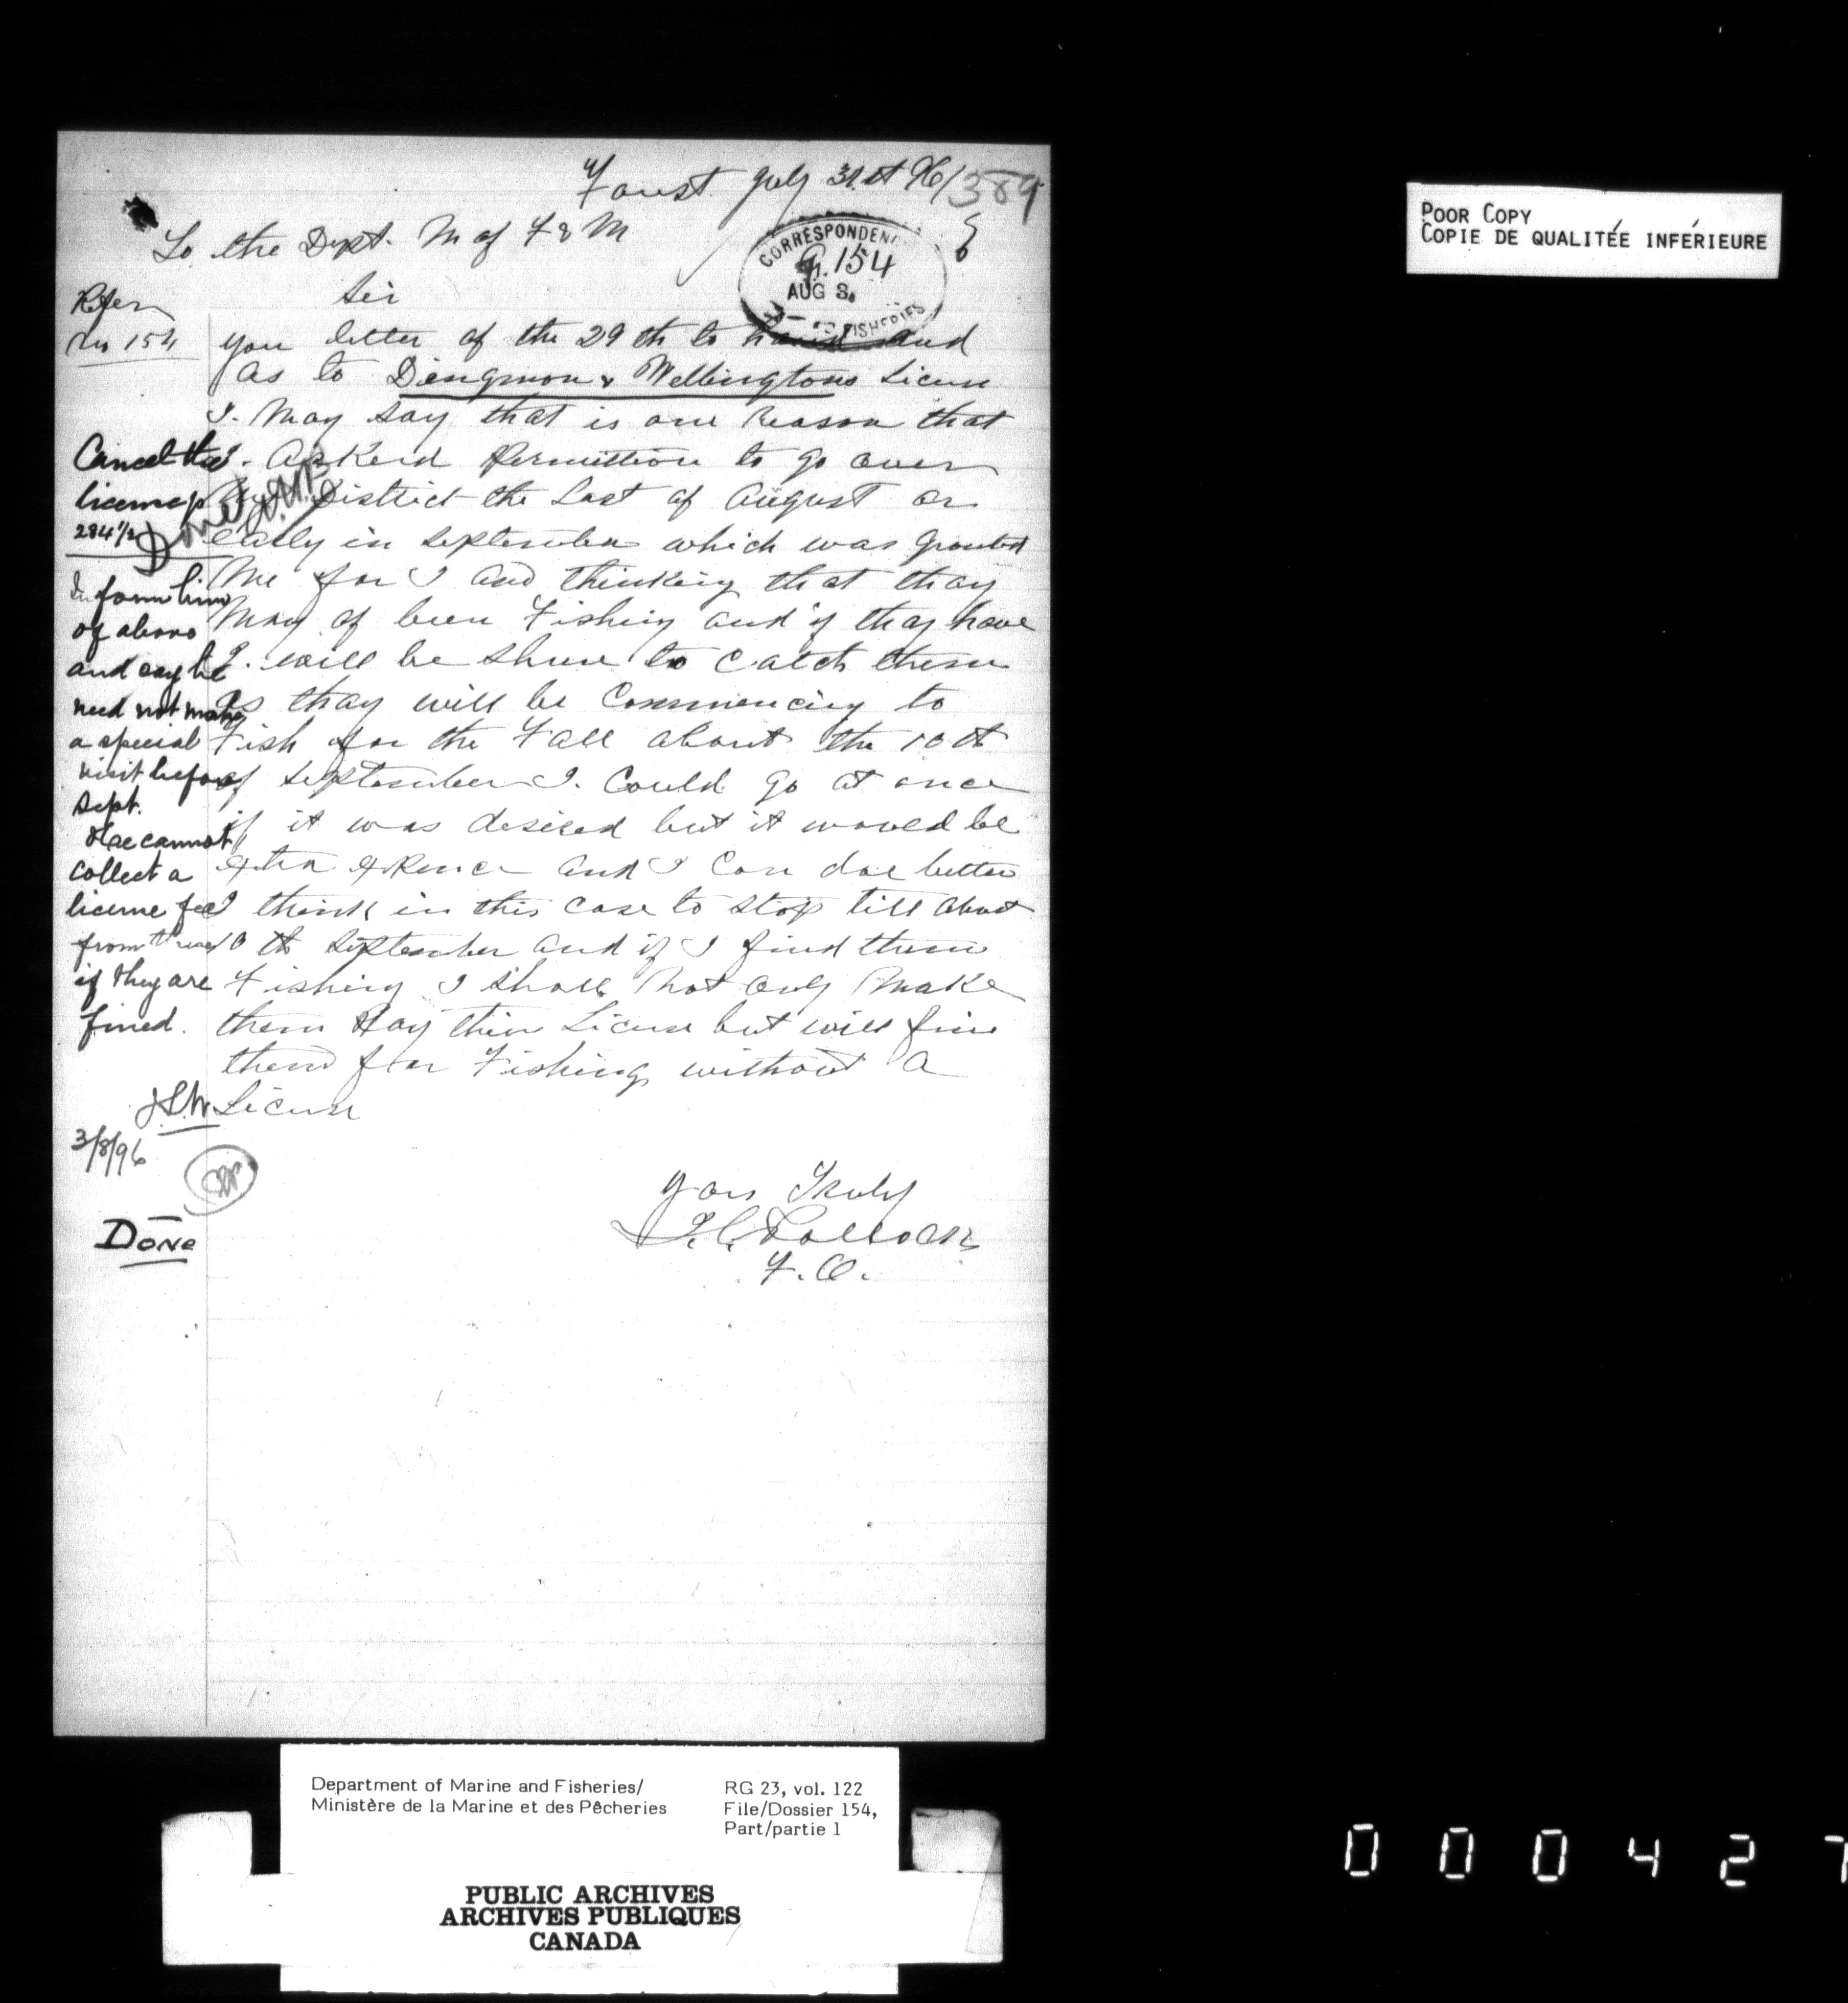 July 31st 96 / 389
To the Dept. M of F & M
CORRESPONDEN
154
AUG 3
FISHERIES
Sir
Refer
No 154
you letter of the 29th to hand and
as to Dingmon & Wellingtons Licens
I. May Say that is one Reason that
I. Askerd Permittion to go over
my District the Last of August or
Early in September which was granted
Me for I and thinking that thay
May of been Fishing and if thay have
I. will be Shure to Catch them
as thay will be Commencing to
Fish for the Fall about the 10th
of September I. Could go at once
if it was desired but it would be
and I Can doe better
I think in this Case to Stop till about
10th September and if I find them
Fishing I shall Not only Make
them Pay their License but will fine
them for Fishing without a
License
Yours Truly
Pollock
F. O.
Cancel the
license
284 1/2
Done
Inform him
of above
and say he
need not make
a special
visit before
Sept.
He cannot
collect a
license fee
from them
if they are
fined.
3/8/96
DONE
POOR COPY
COPIE DE QUALITÉE INFÉRIEURE
Department of Marine and Fisheries/
Ministère de la Marine et des Pêcheries
RG 23, vol. 122
File/Dossier 154,
Part/partie 1
PUBLIC ARCHIVES
ARCHIVES PUBLIQUES
CANADA
000427